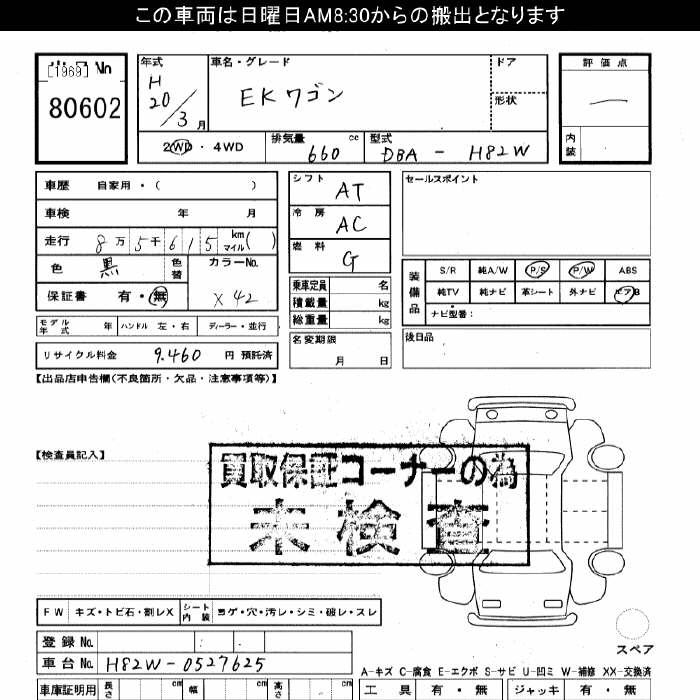 この車両は日曜日AM8:30からの搬出となります
[1969] No
80602
年式 H 20/3 月
車名・グレード EKワゴン
ドア
形状
評価点
内装
2WD・4WD
排気量 660 cc
型式 DBA - H82W
車歴 自家用・( )
車検 年 月
走行 8万5千615 km マイル( )
色 黒 色替
カラーNo. X42
保証書 有・無
モデル年式 年 ハンドル 左・右 ディーラー・並行
リサイクル料金 9.460 円 預託済
シフト AT
冷房 AC
燃料 G
乗車定員 名
積載量 kg
総重量 kg
名変期限 月 日
セールスポイント
装備品
S/R 純A/W P/S P/W ABS
純TV 純ナビ 革シート 外ナビ エアB
ナビ型番:
後日品
【出品店申告欄(不良箇所・欠品・注意事項等)】
【検査員記入】
買取保証コーナーの為
未検査
FW キズ・トビ石・割レX シート内装 ヨゲ・穴・汚レ・シミ・破レ・スレ
登録No.
車台No. H82W-0527625
スペア
A-キズ C-腐食 E-エクボ S-サビ U-凹ミ W-補修 XX-交換済
車庫証明用 長さ cm 幅 cm 高さ cm
工具 有・無 ジャッキ 有・無